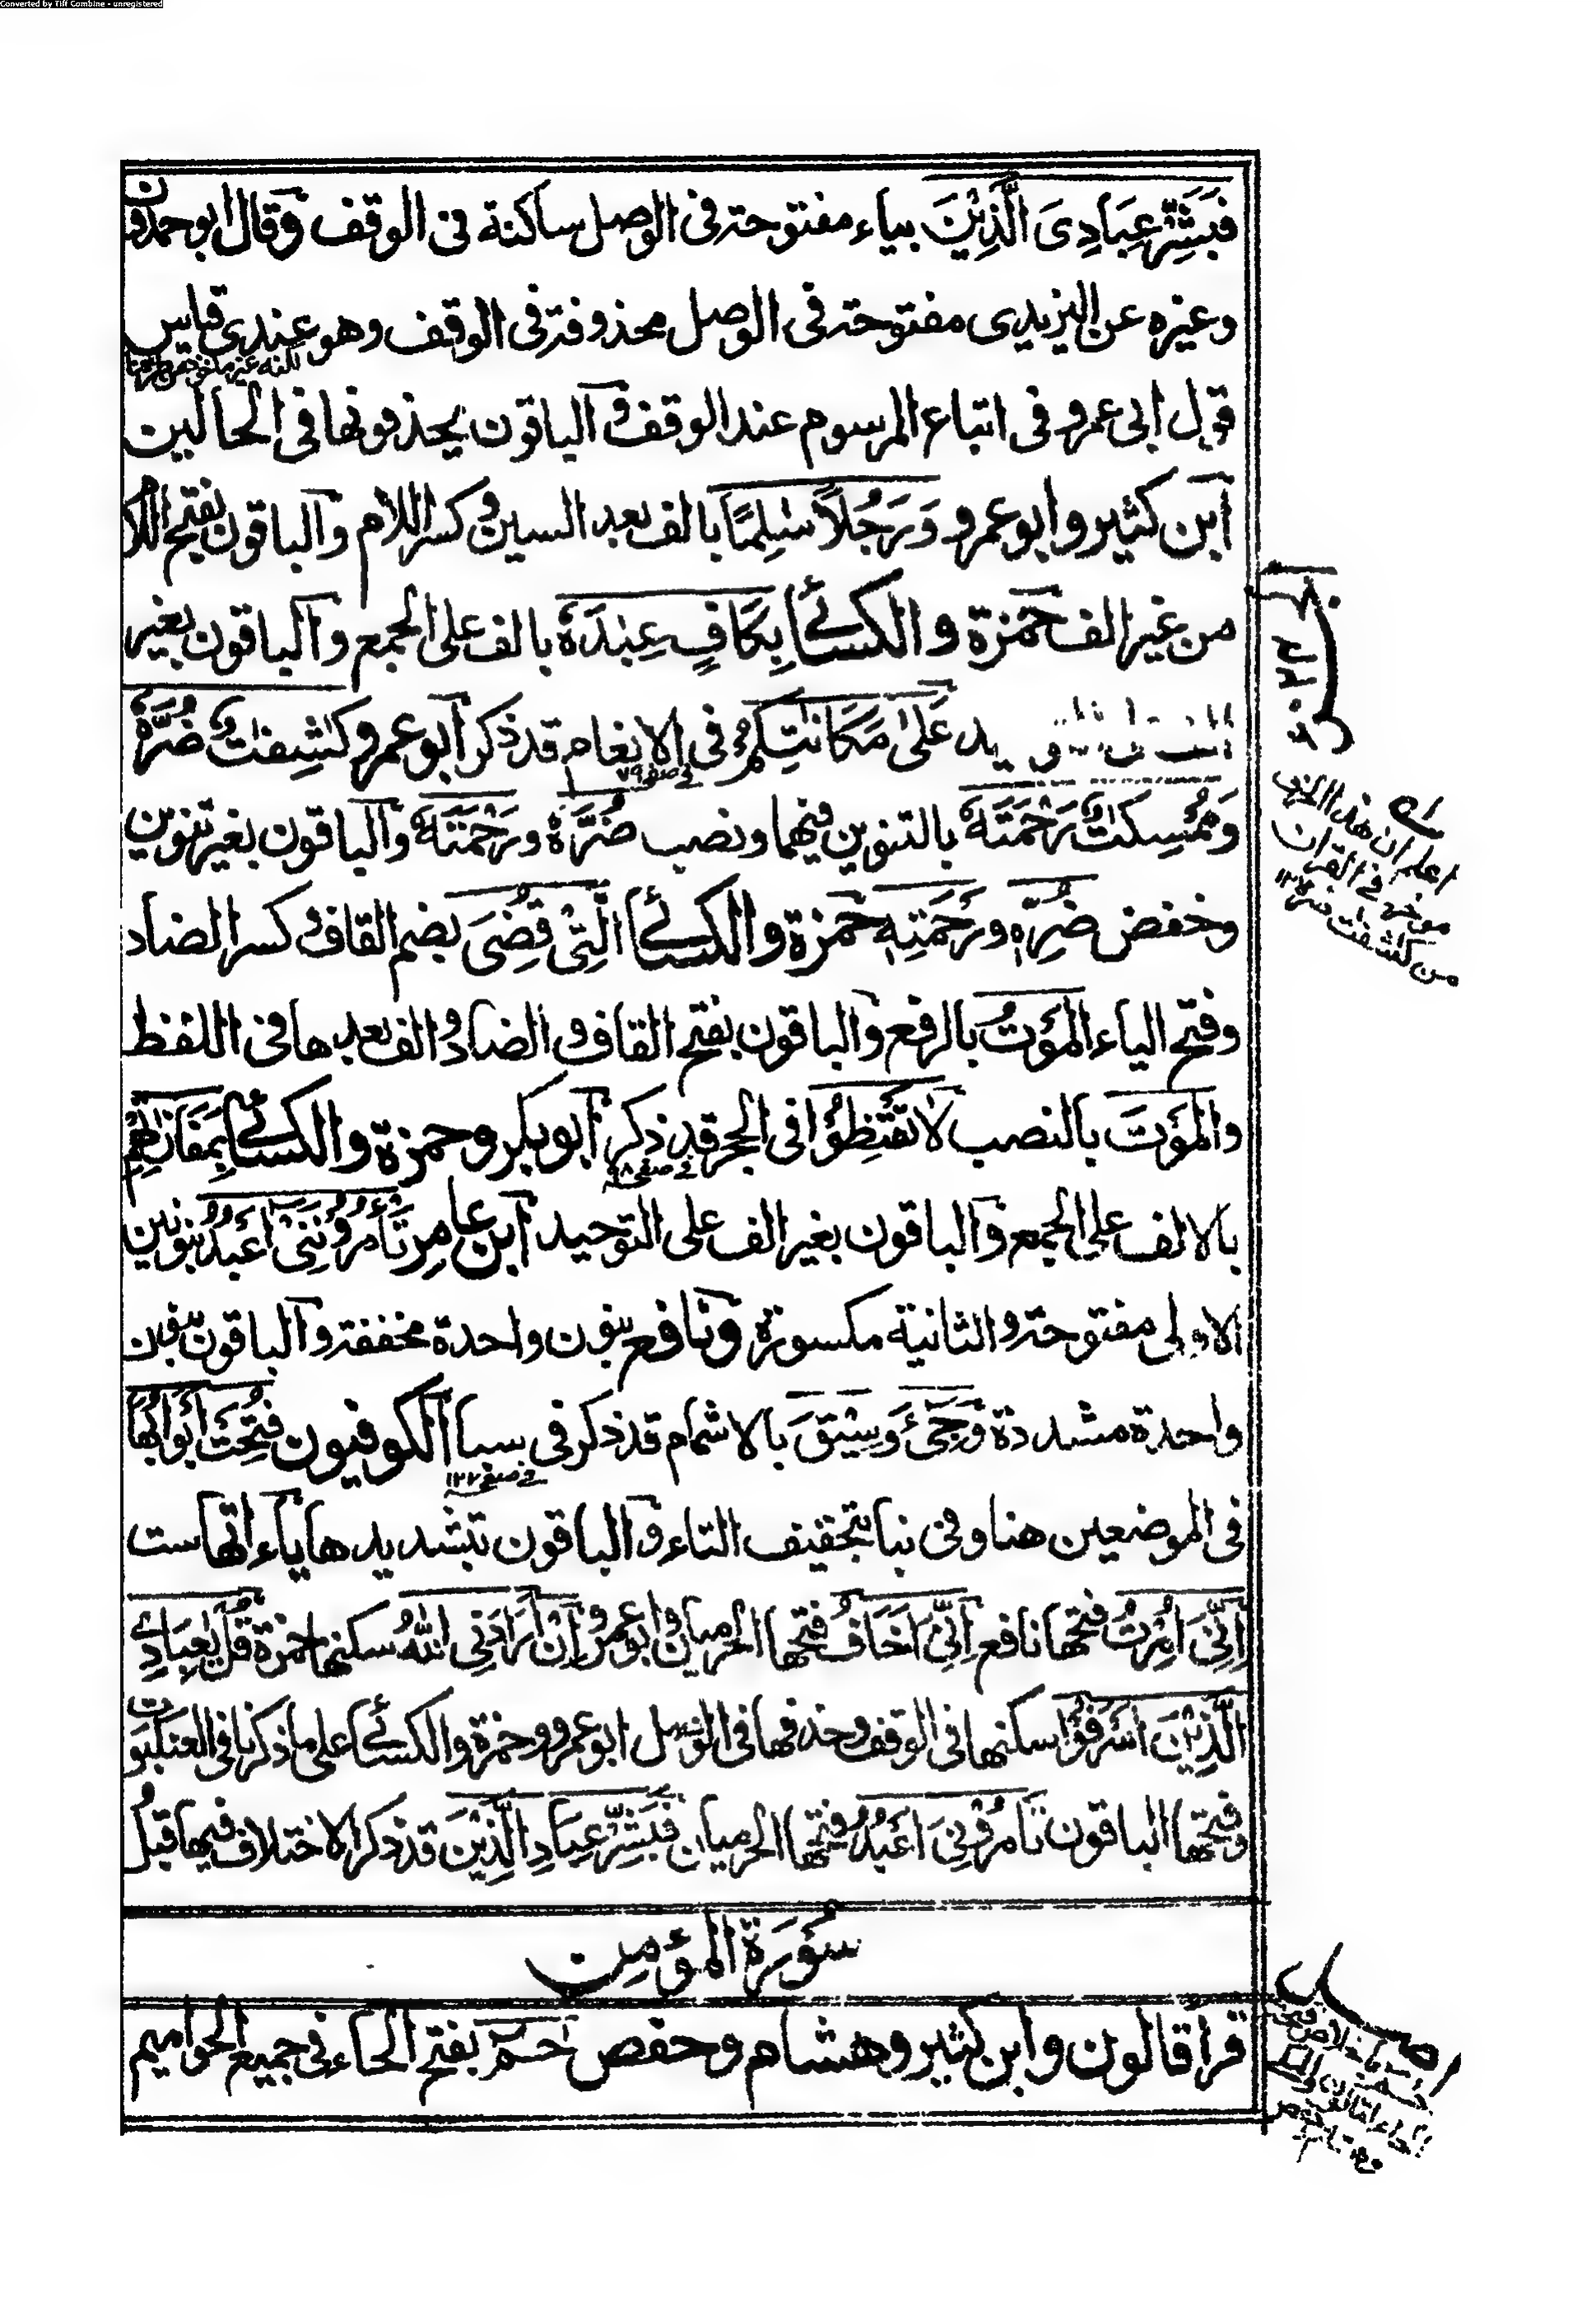 Converted by Tiff Combine - unregistered
فَبَشِّرْ عِبَادِىَ الَّذِيْنَ بياء مفتوحة فى الوصل ساكنة فى الوقف وقال ابو حمدون
وغيره عن اليزيدى مفتوحة فى الوصل محذوفة فى الوقف وهو عندى قياس
قول ابى عمرو فى اتباع المرسوم عند الوقف والباقون يحذفونها فى الحالين
ابن كثير وابو عمرو وَرَجُلًا سٰلِمًا بالف بعد السين وكسر اللام والباقون بفتح اللا
من غير الف حمزة والكسائے بِكَافٍ عِبٰدَهٗ بالف على الجمع والباقون بغير
عَلٰى مَكَانٰتِكُمْ فى الانعام قد ذكر ابو عمرو كٰشِفٰتٌ ضُرَّهٗ
فے صفحہ ٧٩
وَمُمْسِكٰتٌ رَحْمَتَهٗ بالتنوين فيهما ونصب ضُرَّهٗ ورَحْمَتَهٗ والباقون بغير تنوين
وخفض ضُرِّهٖ ورَحْمَتِهٖ حمزة والكسائے الَّتِىْ قُضِىَ بضم القاف وكسر الضاد
وفتح الياء الْمَوْتُ بالرفع والباقون بفتح القاف والضاد والف بعدها فى اللفظ
والْمَوْتَ بالنصب لَا تَقْنَطُوْا فى الحجر قد ذكر ابو بكر وحمزة والكسائے بِمَفَازٰتِهِمْ
بالالف على الجمع والباقون بغير الف على التوحيد ابن عامر تَأْمُرُوْنَنِىْ اَعْبُدُ بنونين
الاولى مفتوحة والثانية مكسورة ونافع بنون واحدة مخففة والباقون بنون
واحدة مشددة وَجِىْٓءَ وَسِيْقَ بالاشمام قد ذكر فى سبا الكوفيون فُتِحَتْ اَبْوَابُهَا
فى الموضعين هنا وفى نبا بتخفيف التاء والباقون بتشديدها ياءاتها ست
اِنِّىَ اُمِرْتُ فتحها نافع اِنِّىَ اَخَافُ فتحها الحرميان وابو عمرو اِنْ اَرَادَنِىَ اللّٰهُ سكنها حمزة قُلْ يٰعِبَادِىَ
الَّذِيْنَ اَسْرَفُوْا سكنها فى الوقف وحذفها فى الوصل ابو عمرو وحمزة والكسائے على ما ذكرنا فى العنكبوت
وفتحها الباقون تَأْمُرُوْنِىَ اَعْبُدُ فتحها الحرميان فَبَشِّرْ عِبَادِ الَّذِيْنَ قد ذكر الاختلاف فيها قبل
سُوْرَةُ المُؤمِن
قرأ قالون وابن كثير وهشام وحفص حٰمٓ بفتح الحاء فى جميع الحواميم
اعلم ان هذا
موخر فى القران
من كاشفات